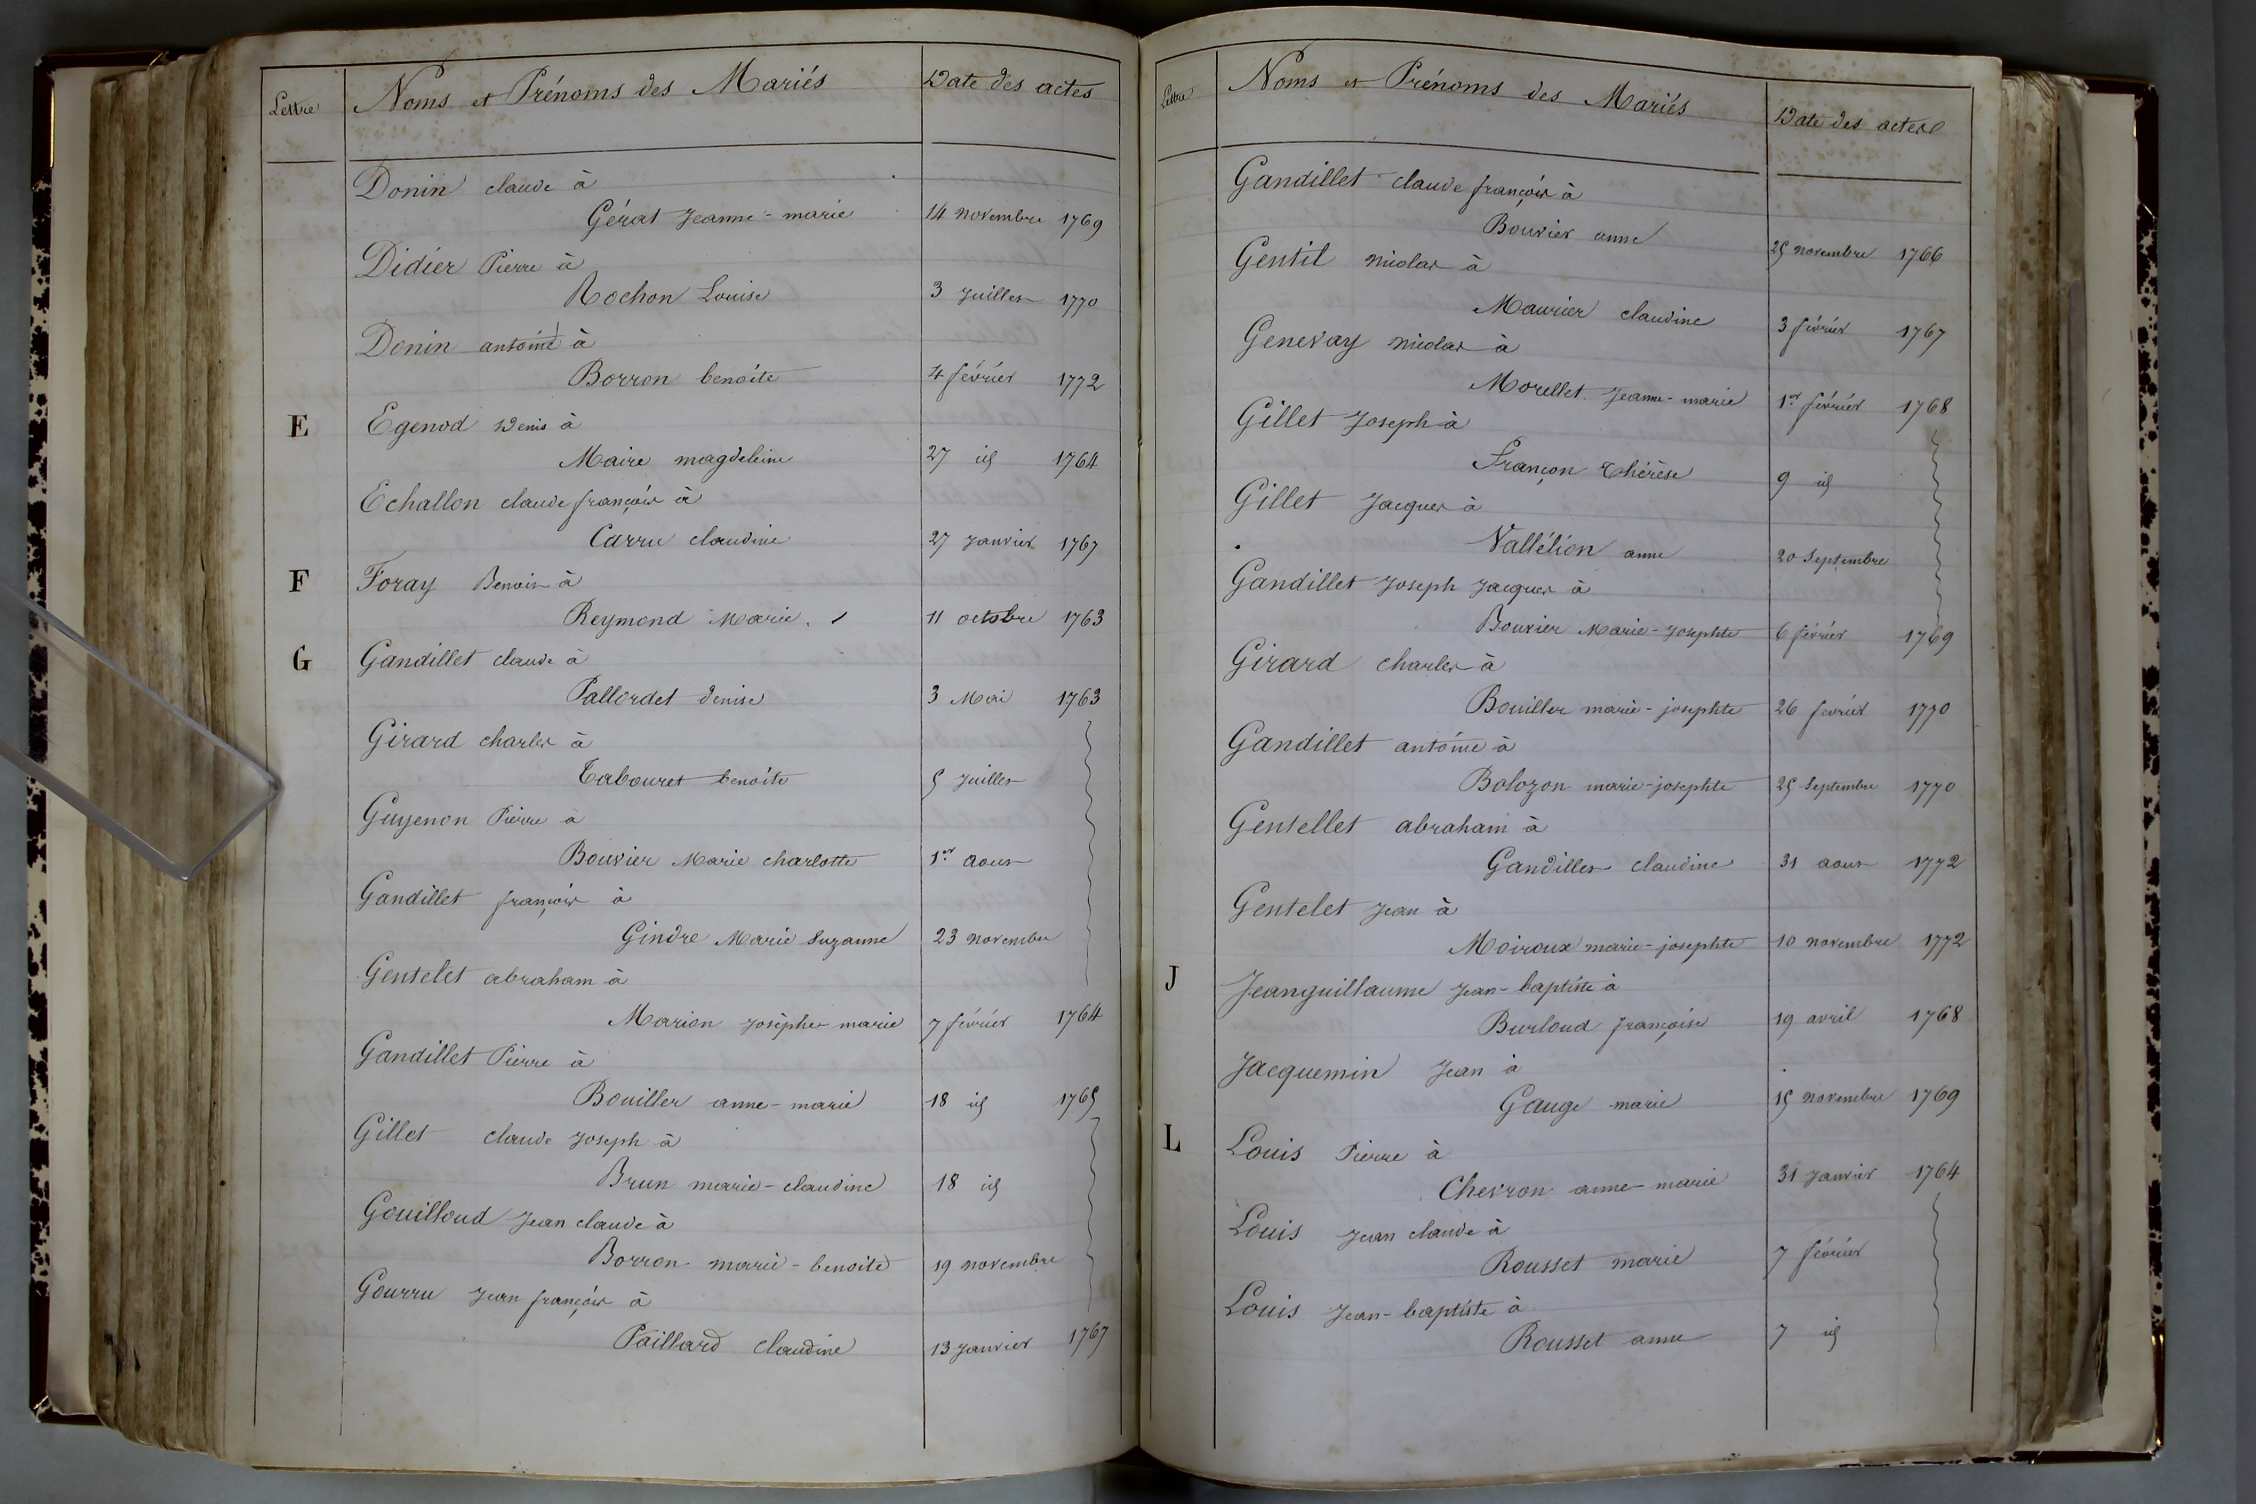 Lettre Noms et Prénoms des Mariés Date des actes
Donin claude à
Gérat Jeanne-marie 14 novembre 1769
Didier Pierre à
Rochon Louise 3 Juillet 1770
Donin antoine à
Borron benoite 4 février 1772
E Egenod Denis à
Maire magdeleine 27 id 1764
Echallon claude françois à
Carru claudine 27 Janvier 1767
F Foray Benoit à
Reymond Marie 11 octobre 1763
G Gandillet claude à
Pallordet denise 3 Mai 1763
Girard charles à
Tabouret benoite 5 Juillet
Guyenon Pierre à
Bouvier Marie charlotte 1er aout
Gandillet françois à
Gindre Marie Suzanne 23 novembre
Gentelet abraham à
Marion Josèphe marie 7 février 1764
Gandillet Pierre à
Bouiller anne-marie 18 id 1765
Gillet claude Joseph à
Brun marie-claudine 18 id
Gouilloud Jean claude à
Borron marie-benoite 19 novembre
Gourru Jean françois à
Paillard claudine 13 Janvier 1767
Lettre Noms et Prénoms des Mariés Date des actes
Gandillet claude françois à
Bouvier anne 25 novembre 1766
Gentil nicolas à
Maurier claudine 3 février 1767
Genevay nicolas à
Morellet Jeanne-marie 1er février 1768
Gillet Joseph à
Françon Thérèse 9 id
Gillet Jacques à
Vallélion anne 20 Septembre
Gandillet Joseph Jacques à
Bouvier Marie-Josephte 6 février 1769
Girard charles à
Bouiller marie-josephte 26 février 1770
Gandillet antoine à
Bolozon marie-josephte 25 Septembre 1770
Gentellet abraham à
Gandillet claudine 31 aout 1772
Gentelet Jean à
Moiroux marie-josephte 10 novembre 1772
J Jeanguillaume Jean-baptiste à
Burloud françoise 19 avril 1768
Jacquemin Jean à
Gauge marie 15 novembre 1769
L Louis Pierre à
Chevron anne-marie 31 Janvier 1764
Louis Jean claude à
Rousset marie 7 février
Louis Jean-baptiste à
Rousset anne 7 id